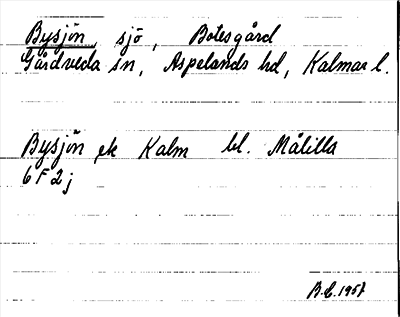 Bysjön, sjö, Botesgård
Gårdveda sn, Aspelands hd, Kalmar l.
Bysjön ek Kalm bl. Målilla
6F2j
B.E. 1957